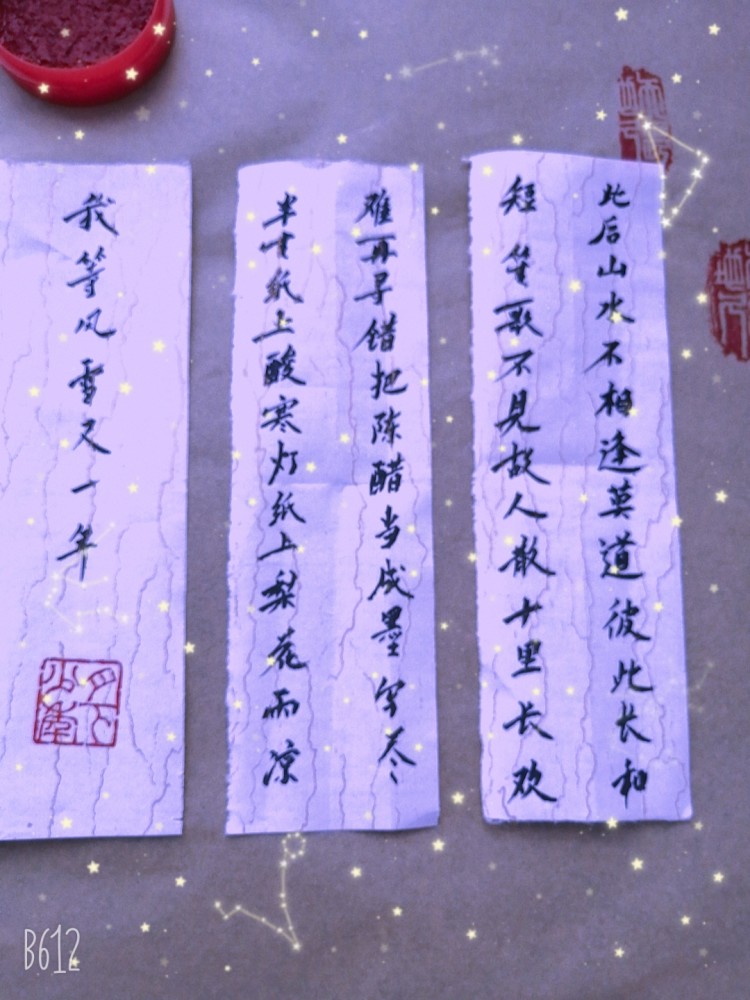 此后山水不相逢莫道彼此长和
短笙歌不見故人散十里长欢
难再寻错把陈醋当成墨写尽
半生纸上酸寒灯纸上梨花雨凉
我等风雪又一年
B612